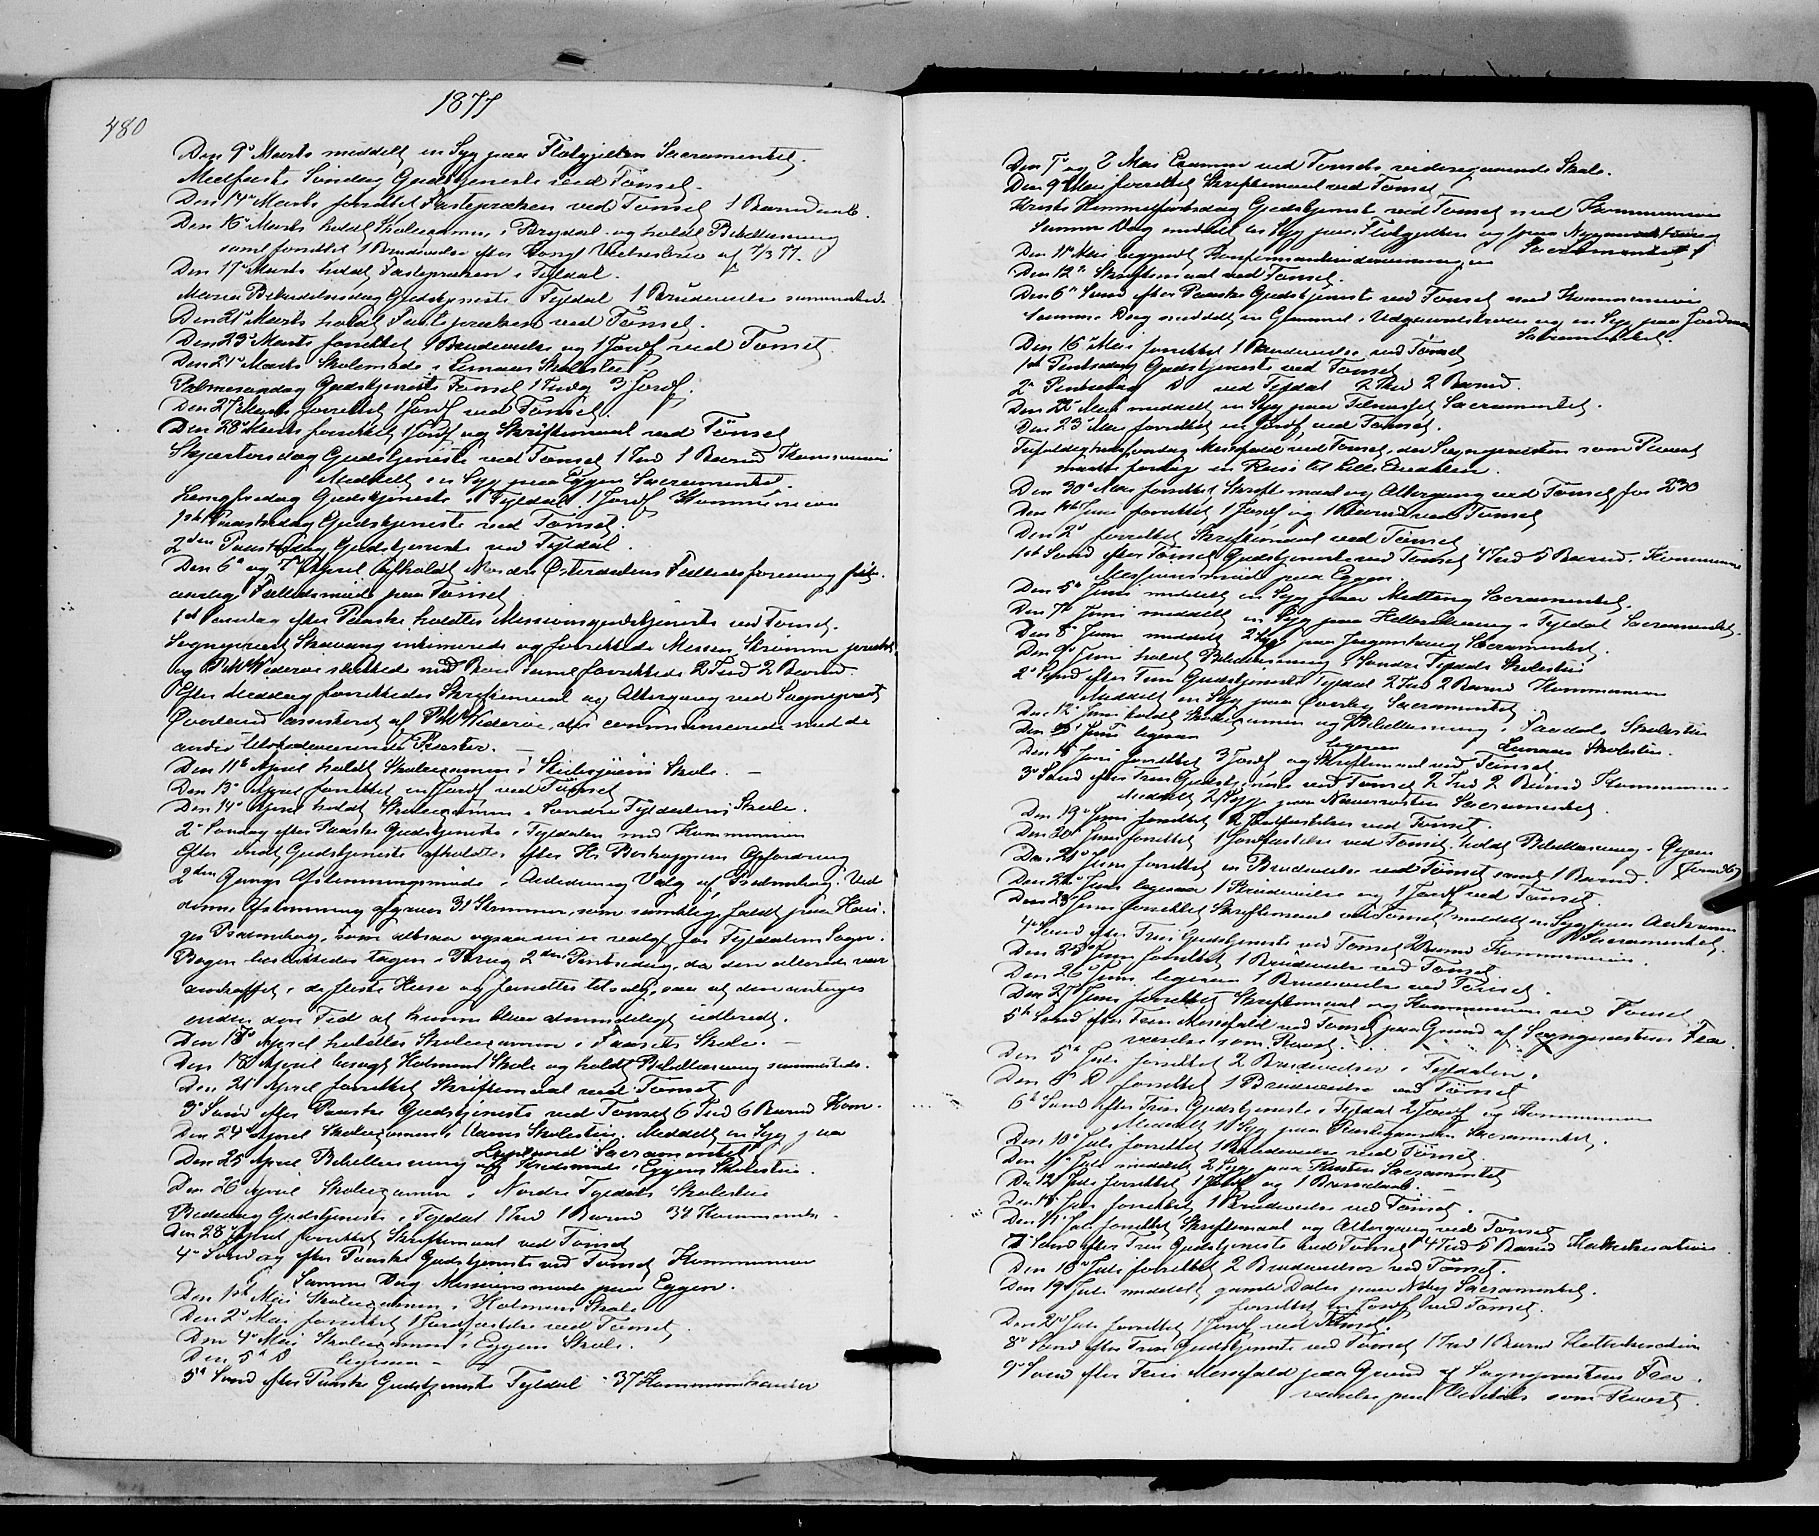 480
1877
Den 9de Marts meddelt en Syg paa Flatgjelten Sacramentet.
Midfaste Søndag Gudstjeneste ved Tønset.
Den 14de Marts forrettet Fasteprækén ved Tønset 1 Barnedaab.
Den 16de Marts holdt Skoleexamen i Brydal og holdt Bibellæsning
samt forrettet 1 Brudevielse efter Kongl Vielsesbrev af 7/3 77.
Den 17de Marts holdt Fasteprækén i Tyldal.
Mariæ Bebudelsesdag Gudstjeneste Tyldal 1 Brudevielse sammesteds
Den 21de Marts holdt Fasteprækén ved Tønset.
Den 23de Marts forrettet 1 Brudevielse og 1 Jordf ved Tønset.
Den 24de Marts Skolemøde i Lernæs Skolestue
Palmesøndag Gudstjeneste Tønset 1 Introd 3 Jordf.
Den 27de Marts forrettet 1 Jordf ved Tønset.
Den 28de Marts forrettet 1 Jordf og Skriftemaal ved Tönset
Skjærtorsdag Gudstjeneste ved Tønset 1 Ind 1 Barnd Kommunion
Meddelt en Syg paa Eggen Sacramentet.
Langfredag Gudstjeneste i Tyldal. 1 Jordf Kommunion
1ste Paaskedag Gudstjeneste ved Tønset.
2den Paaskedag Gudstjeneste ved Tyldal.
Den 6te og 7de April afholdt Nordre Østerdalens Fælledsforening sit
aarlige Fælledsmøde paa Tønset
1ste Søndag efter Paaske holdtes Missionsgudstjeneste ved Tønset.
Sognepræst Skavang intimerede og forrettede Messen, Strømme prækede
og P. M. Widerøe sluttede med Bøn samt forrettede 2 Ind 2 Barnd.
Efter Middag forrettedes Skriftemaal og Altergang ved Sognepræst
Øverland assisteret af P. M. Widerøe, der communicerede med de
andre tilstedeværende Præster.
Den 11te April holdt Skoleexamen i Stubsjøens Skole.
Den 13de April forrettet en Jordf ved Tønset
Den 14de April holdt Skoleexamen i Søndre Tyldalens Skole.
2den Søndag efter Paaske Gudstjeneste i Tyldalen med Kommunion
Efter endt Gudstjeneste afholdtes efter Hr. Biskoppens Opfordring
2den Gangs Afstemningsmøde i Anledning Valg af Psalmebog. Ved
denne Afstemning afgaves 31 Stemmer, som samtlige faldt paa Hau-
ges Psalmebog, som altsaa ogsaa nu er valgt for Tyldalens Sogn.
Bogen besluttedes tagen i Brug 2den Pintsedag, da den allerede var
anskaffet i de fleste Huse og forøvrigt tilsalg, saa at den antoges
endnu den Tid at kunne blive almindeligt udbredt.
Den 17de April holdtes Skoleexamen i Faasets Skole.
Den 18de April besøgt Holmens Skole og holdt Bibellæsning sammesteds.
Den 21de April forrettet Skriftemaal ved Tønset
3de Sønd efter Paaske Gudstjeneste ved Tønset 6 Ind 6 Barnd Kom.
Den 24de April Skoleexamen i Skolestue. Meddelt en Syg paa
Sacramentet
Den 25de April Bibellæsning og Kredsmøde i Eggens Skolestue.
Den 26de April Skoleexamen i Nordre Tyldals Skolestue
Bededag Gudstjeneste i Tyldal 1 Ind 1 Barnd 34 Kommunik.
Den 28de April forrettet Skriftemaal ved Tønset
4de Søndag efter Paaske Gudstjeneste ved Tønset Kommunion
Samme Dag Missionsmøde paa Eggen.
Den 1ste Mai Skoleexamen i Holmens Skole
Den 2den Mai forrettet 1 Jordfæstelse ved Tønset.
Den 4de Mai Skoleexamen i Eggens Skole.
Den 5te D ligesaa
5te Sønd efter Paaske Gudstjeneste Tyldal 37 Kommunikanter
Den 7de og 8 Mai Examen ved Tønsets videregaaende Skole.
Den 9de Mai forrettet Skriftemaal ved Tønset
Kristi Himmelfartsdag Gudstjeneste ved Tønset med Kommunion
Samme Dag meddelt en Syg paa Flatgjelten og 1 paa
Sacramentet
Den 11te Mai begyndt Konfirmantundervisningen
Den 12te Skriftemaal ved Tønset.
Den 6te Sønd efter Paaske Gudstjeneste ved Tønset med Kommunion
Samme Dag meddelt en Gammel i og en Syg paa
Sacramentet.
Den 16de Mai forrettet 1 Brudevielse ved Tønset
1ste Pintsedag Gudstjeneste ved Tønset
2den Pintsedag D ved Tyldal 2 Ind 2 Barnd.
Den 22de Mai meddelt en Syg paa Telnesset Sacramentet.
Den 23de Mai forrettet en Jordf ved Tønset.
Trefoldighedssøndag Messefald ved Tønset, da Sognepræsten som Provst
maatte foretage en Reise til Lille Elvedalen.
Den 30te Mai forrettet Skriftemaal og Altergang ved Tønset for 230
Den 1ste Juni forrettet 1 Jordf og 1 Barnd ved Tønset
Den 2den forrettet Skriftemaal ved Tønset
1ste Sønd efter Gudstjeneste ved Tønset 4 Ind 5 Barnd. Kommunion
Missionsmøde paa Eggen.
Den 5te Juni meddelt en Syg paa Sacramentet.
Den 7de Juni meddelt en Syg paa i Tyldal Sacramentet.
Den 8de Juni meddelt 2 Syge paa Sacramentet.
Den 9de Juni holdt Bibellæsning i Søndre Tyldals Skolestue
2den Sønd efter Trin Gudstjeneste Tyldal 2 Ind 2 Barnd Kommunion
Meddelt en Syg paa Øverby Sacramentet.
Den 12te Juni holdt Skoleexamen og Bibellæsning i Skolestue
Den 13de Juni ligesaa ligesaa Lernæs Skolestue.
Den 16de Juni forrettet 3 Jordf og Skriftemaal ved Tønset
3de Sønd efter Trin Gudstjeneste ved Tønset 2 Ind 2 Barnd Kommunion.
Meddelt 2 Syge paa Sacramentet.
Den 19de Juni forrettet 2 Jordfæstelser ved Tønset.
Den 20de Juni forrettet 1 Jordfæstelse ved Tønset. holdt Bibellæsning i
Den 21de Juni forrettet en Brudevielse ved Tønset samt 1 Barnd.
Den 22de Juni ligesaa 1 Brudevielse og 1 Jordf ved Tønset.
Den 23de Juni forrettet Skriftemaal ved Tønset, meddelt en Syg paa
Sacramentet.
4de Sønd efter Trin Gudstjeneste ved Tønset 2 Barnd Kommunion.
Den 25de Juni forrettet 1 Brudevielse ved Tønset.
Den 26de Juni ligesaa 1 Brudevielse ved Tønset.
Den 27de Juni forrettet Skriftemaal og Kommunion ved Tønset
5te Sønd efter Trin Messefald ved Tønset paa Grund af Sognepræstens Fra-
værelse som Provst.
Den 5te Juli forrettet 2 Brudevielser i Tyldalen.
Den 6te D forrettet 1 Brudevielse ved Tønset
6te Sønd efter Trin Gudstjeneste i Tyldal 2 Jordf og Kommunion
Meddelt 1 Syg paa Sacramentet.
Den 10de Juli forrettet 1 Brudevielse ved Tønset.
Den 11te Juli meddelt 2 Syge paa Sacramentet
Den 12te Juli forrettet 1 Jordf og 1 Barnedaab.
Den 13de Juli forrettet 1 Brudevielse ved Tønset.
Den 14de Juli forrettet Skriftemaal og Altergang ved Tønset
7de Sønd efter Trin Gudstjeneste ved Tønset 4 Ind 5 Barnd Katechisation
Den 18de Juli forrettet 2 Brudevielser ved Tønset.
Den 19de Juli meddelt gamle paa Neby Sacramentet.
forrettet en Jordf ved Tønset.
Den 20de Juli forrettet 1 Jordf ved Tønset.
8de Sønd efter Trin Gudstjeneste ved Tønset 1 Ind 1 Barnd Katechisation
9de Sønd efter Trin Messefald paa Grund af Sognepræstens Fra-
værelse paa Visitats som Provst.